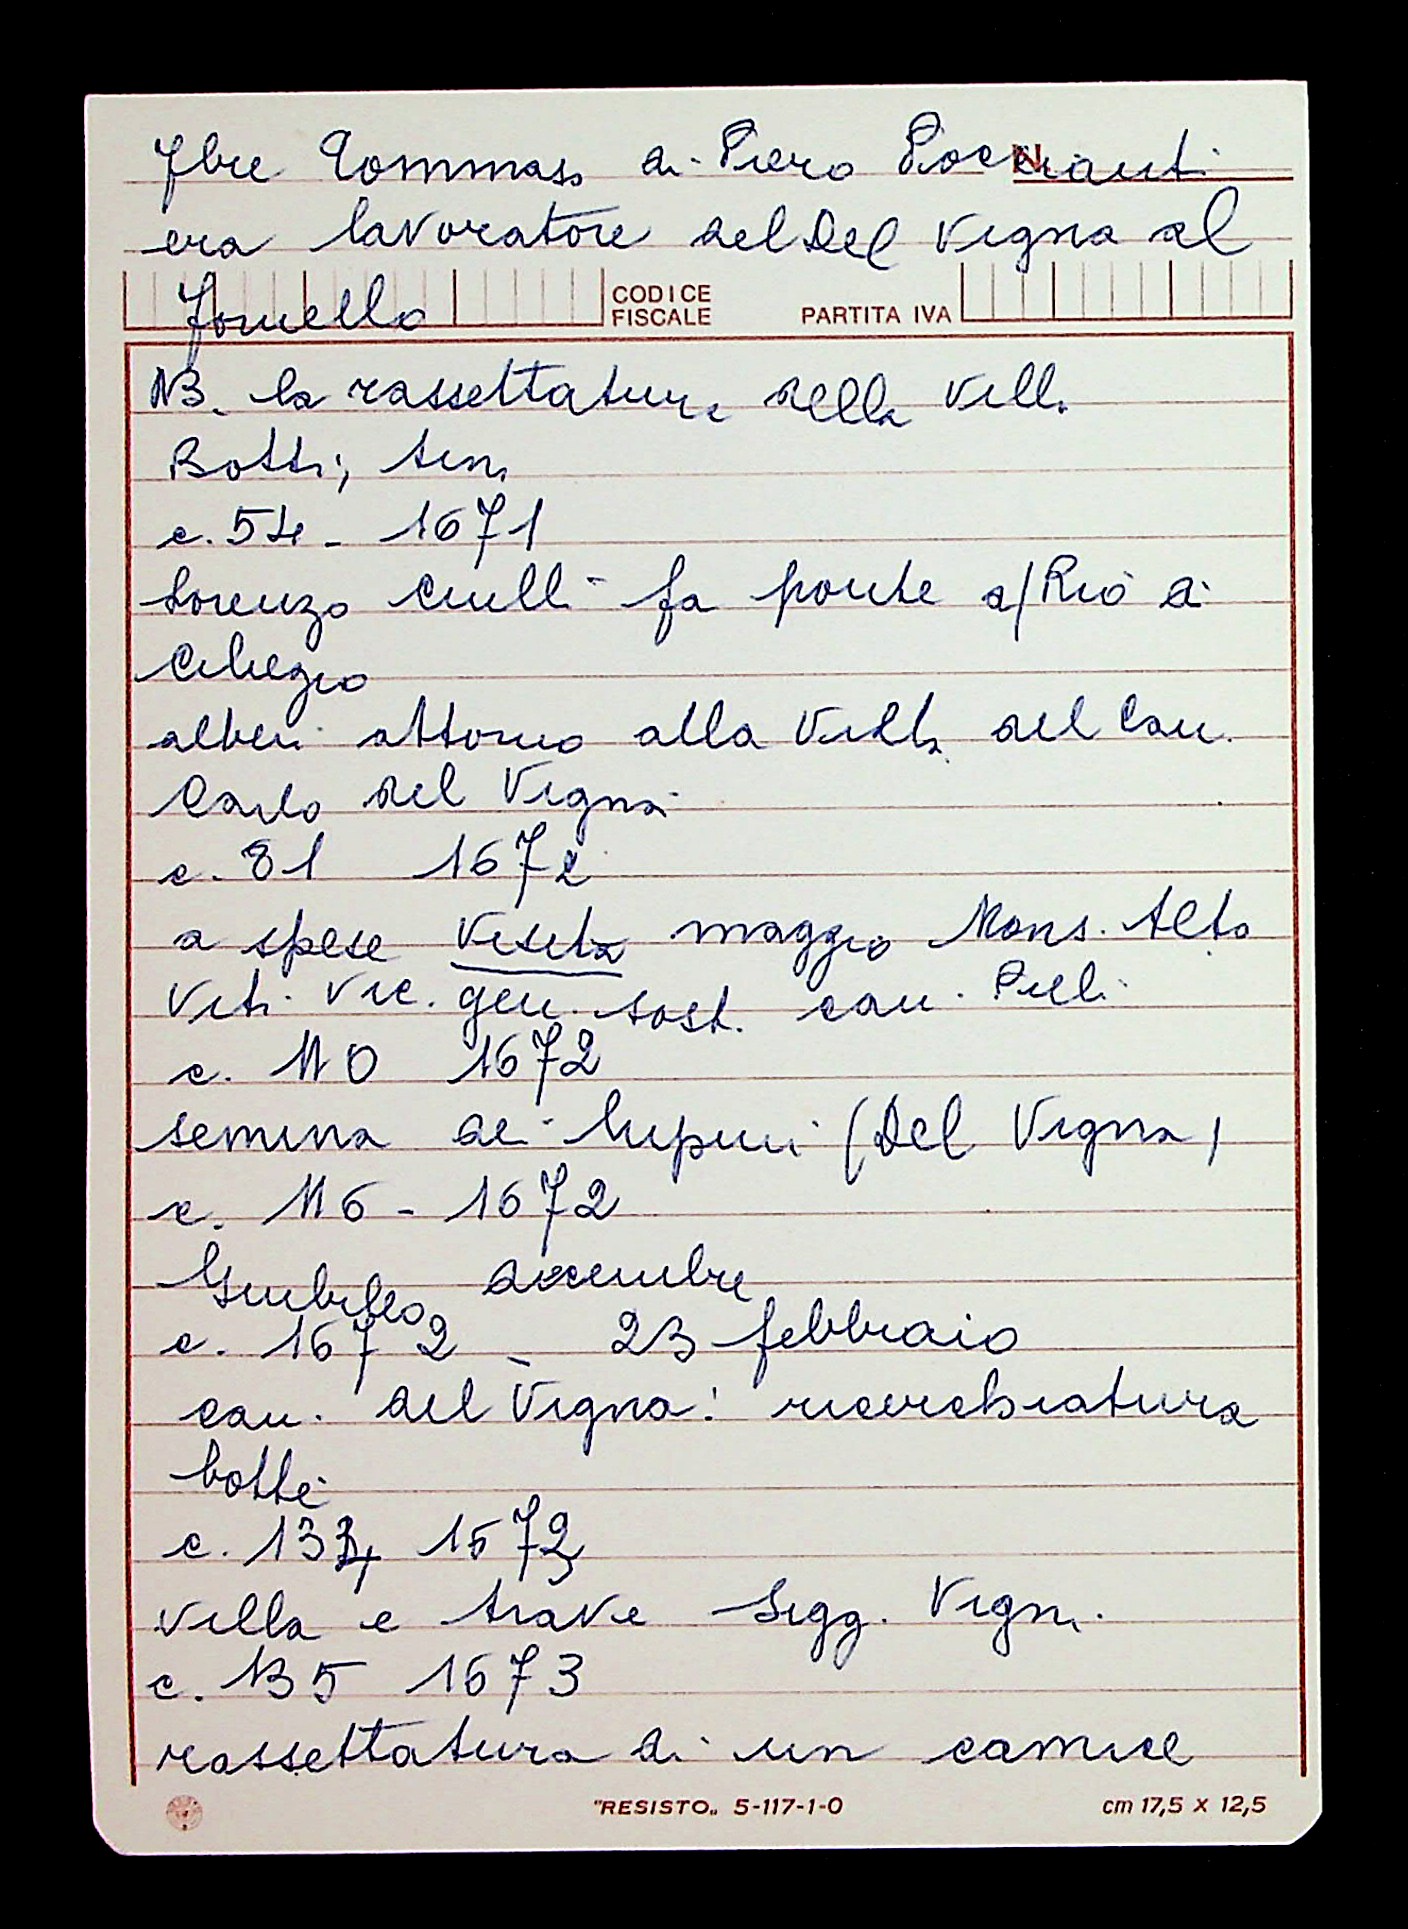 7bre Tommaso di Piero Poccianti
era lavoratore del Del Vigna al
fornello
CODICE FISCALE PARTITA IVA
NB. la rassettatura della Villa
Botti, tini
c. 54 - 1671
Lorenzo Ciulli fa ponte a/ Rio di
Ciliegio
alberi attorno alla Villa del Can.
Carlo del Vigna
c. 81 1672
a spese Visita maggio Mons. Alto
Viti Vic. gen. sost. can. Pieli
c. 110 1672
semina dei lupini (Del Vigna)
c. 116 - 1672
Giubileo dicembre
c. 1672 - 23 febbraio
can. del Vigna: ricerchiatura
botti
c. 134 1673
Villa e trave Sigg. Vigna
c. 135 1673
rassettatura di un camice
"RESISTO„ 5-117-1-0 cm 17,5 x 12,5